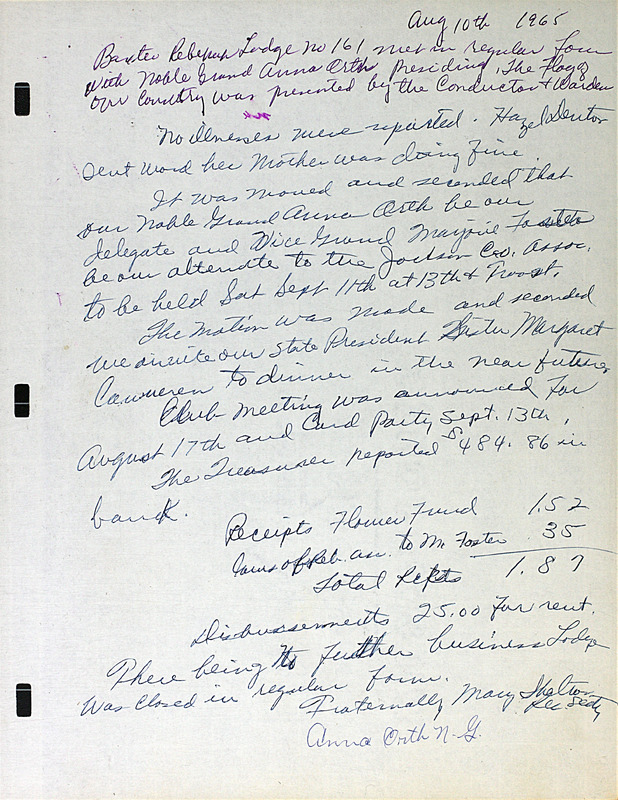 Aug 10th 1965
Baxter Rebekah Lodge No 161 met in regular form
with Noble Grand Anna Orth presiding, The Flag of
our Country was presented by the Conductor & Warden
No illnesses were reported. Hazel Denton
sent word her Mother was doing fine.
It was moved and seconded that
our Noble Grand Anna Orth be our
delegate and Vice Grand Marjorie Foster
be our alternate to the Jackson Co. Assoc.
to be held Sat Sept 11th at 13th & Troost.
The motion was made and seconded
we invite our State President Sister Margaret
to dinner in the near future
Club Meeting was announced for
August 17th and Card Party Sept. 13th,
The Treasurer reported $484.86 in
bank.
Receipts Flower Fund 1.52
Laws of Reb. as. to M. Foster .35
Total Repts 1.87
Disbursements 25.00 for rent.
There being no further business Lodge
was closed in regular form.
Fraternally Mary Shelton
Rec. Secty
Anna Orth N.G.